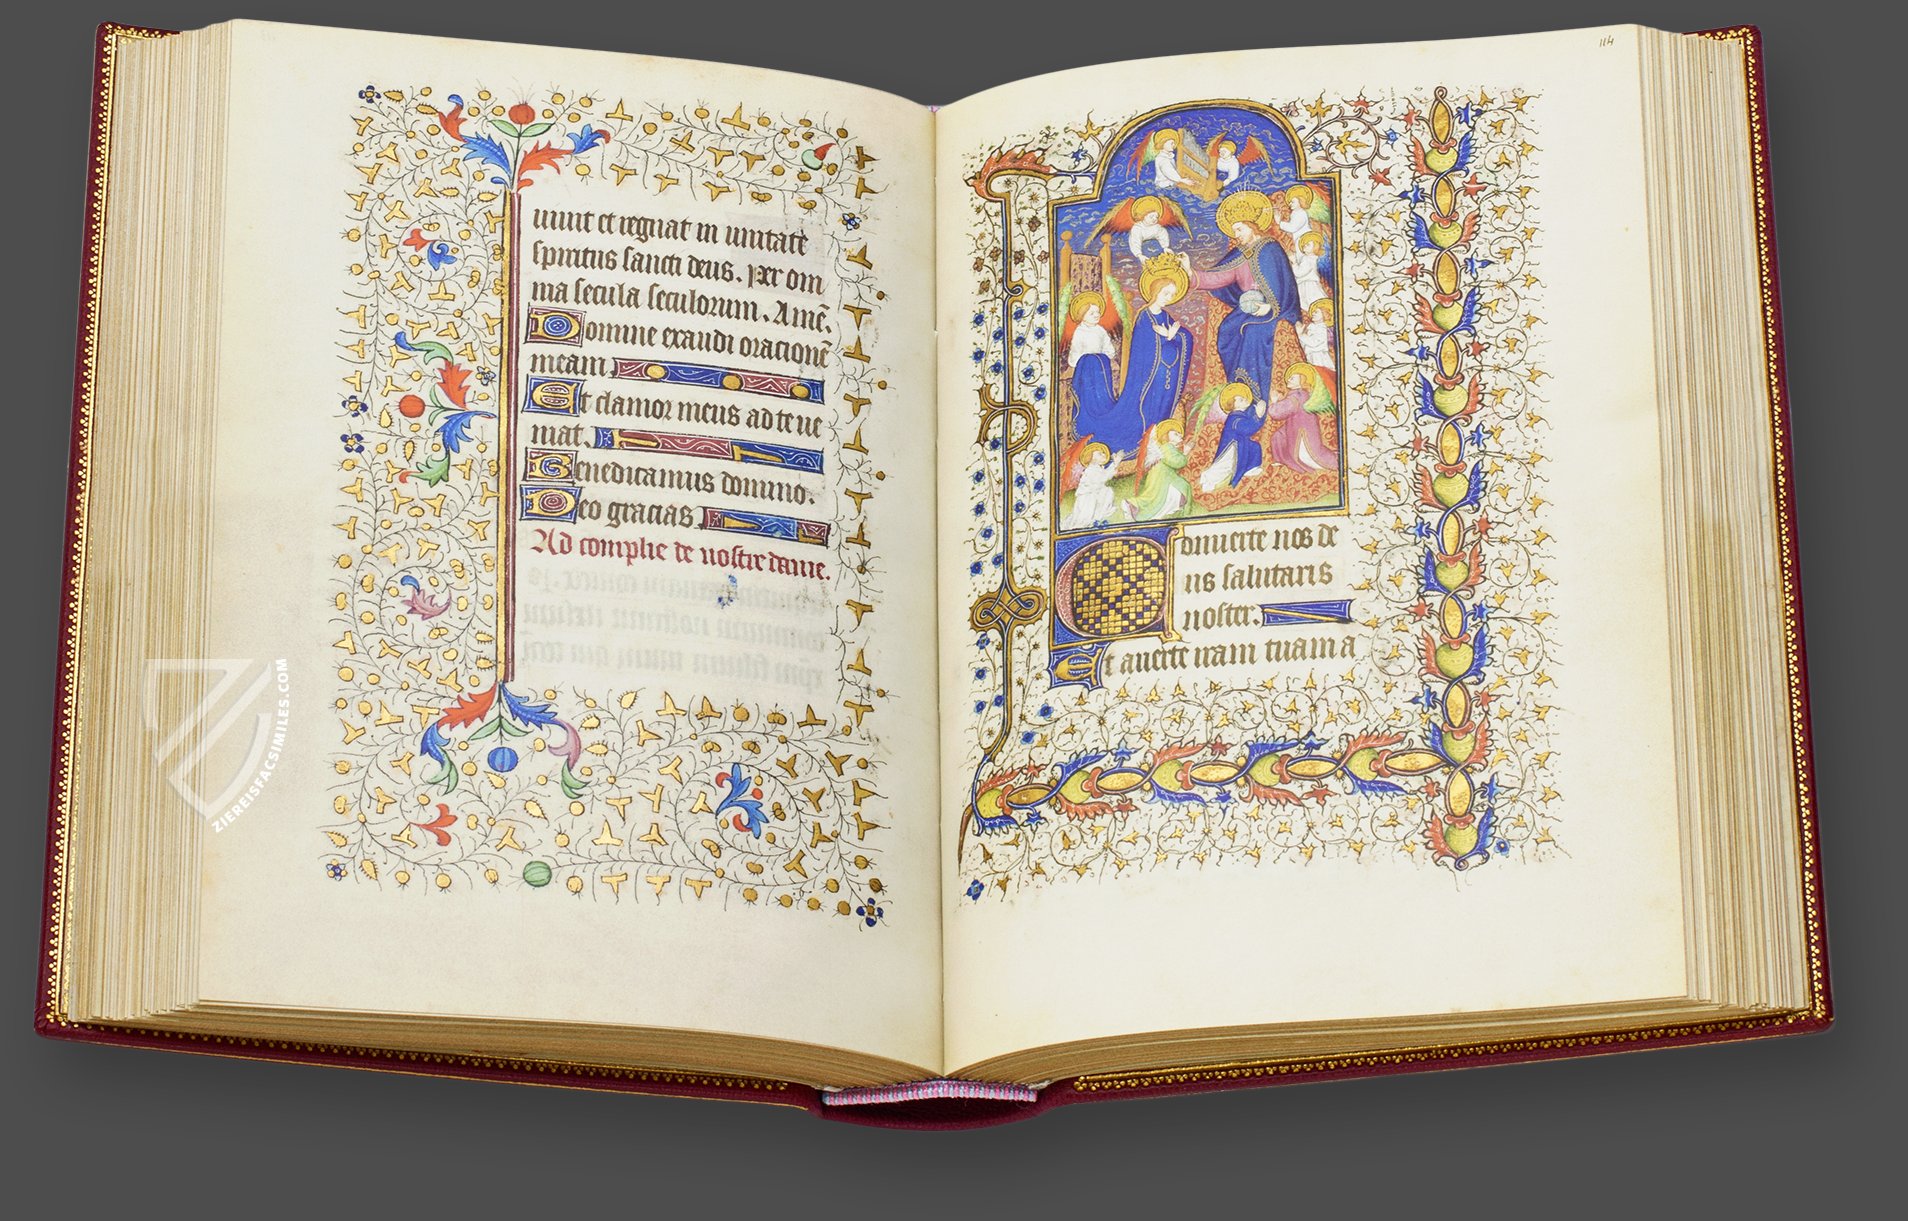 uiuit et regnat in unitate
spiritus sancti deus. Per om
nia secula seculorum. Amē.
Domine exaudi oracionē
meam
Et clamor meus ad te ue
niat.
Benedicamus domino.
Deo gracias
Ad complie de nostre dame.
114
Conuerte nos de
us salutaris
noster.
Et auerte iram tuam a
ZIEREISFACSIMILES.COM